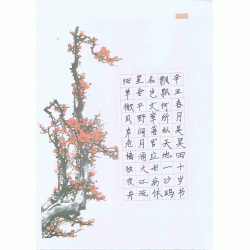 细草微风岸危樯独夜舟
星垂平野阔月涌大江流
名岂文章著官应老病休
飘飘何所似天地一沙鸥
辛丑春月吴昊田十岁书